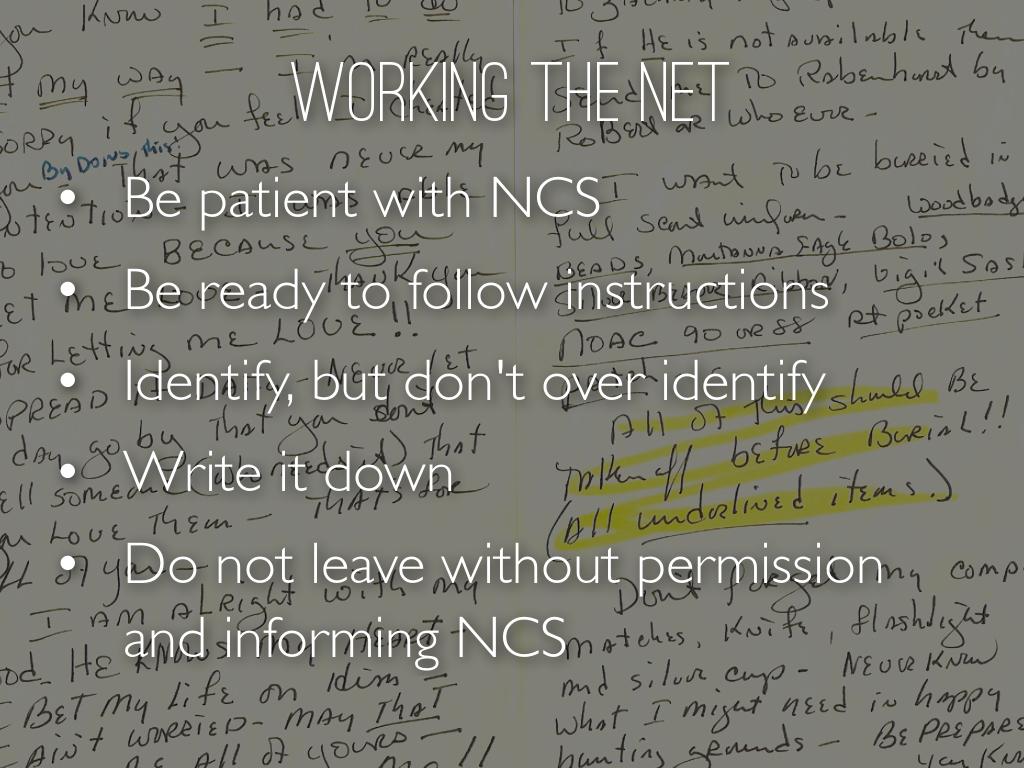 WORKING THE NET
• Be patient with NCS
• Be ready to follow instructions
• Identify, but don't over identify
• Write it down
• Do not leave without permission
and informing NCS
you Know I had to do
my way — I'm really
sorry if you feel I
By Doing this
That was never my
BECAUSE you
Thank you
LET ME LOVE
FOR LETTING ME LOVE!!
SPREAD DAILY - NEVER LET
day go by That you don't
That
tell someone
you LOVE Them — THATS FOR
ALL of you —
I AM ALRight with my
HE KNOWS my HEART —
I BET My Life on Him —
AIN'T WORRIED - MAY THAT
BE ALL OF yours —
If HE is not available Then
send me TO Rabenhorst by
Robert or whoever -
I want To be burried in
full scout uniform - Woodbadge
BEADS, Montana Eagle Bolo,
Silver Beaver Ribbon, Vigil Sash
NOAC 90 or 88 Rt pocket
All of This should BE
Taken off before Burial!!
(All underlined items.)
Don't forget my comp
matches, Knife, flashlight
and silver cup - NEVER KNOW
what I might need in happy
hunting grounds — BE PREPARE
you Know